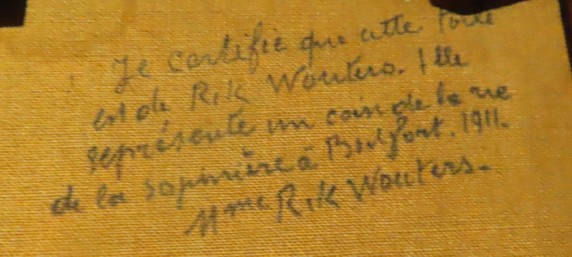 Je certifie que cette toile
est de Rik Wouters. Elle
représente un coin de la rue
de la sapinière à Boitsfort. 1911.
Mme Rik Wouters.